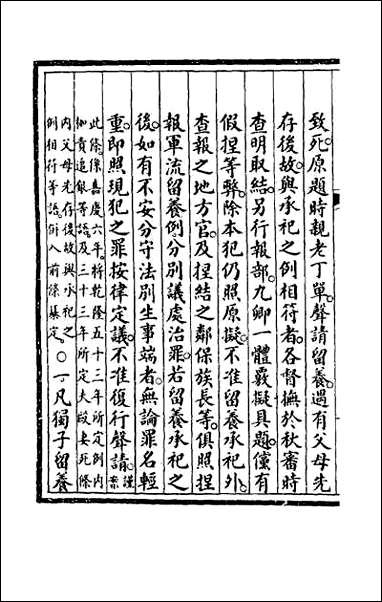 致死原題時親老丁單聲請留養遇有父母先
存後故與承祀之例相符者各督撫於秋審時
查明取結另行報部九卿一體覈擬具題儻有
假捏等弊除本犯仍照原擬不准留養承祀外
查報之地方官及捏結之鄰保族長等俱照捏
報軍流留養例分別議處治罪若留養承祀之
後如有不安分守法別生事端者無論罪名輕
重即照現犯之罪按律定議不准復行聲請謹案
此條係嘉慶六年將乾隆五十三年所定例內
加責追銀等語及三十三年所定夫毆妻死條
內父母先存後故與承祀之
例相符等語併入前條纂定〇一凡獨子留養